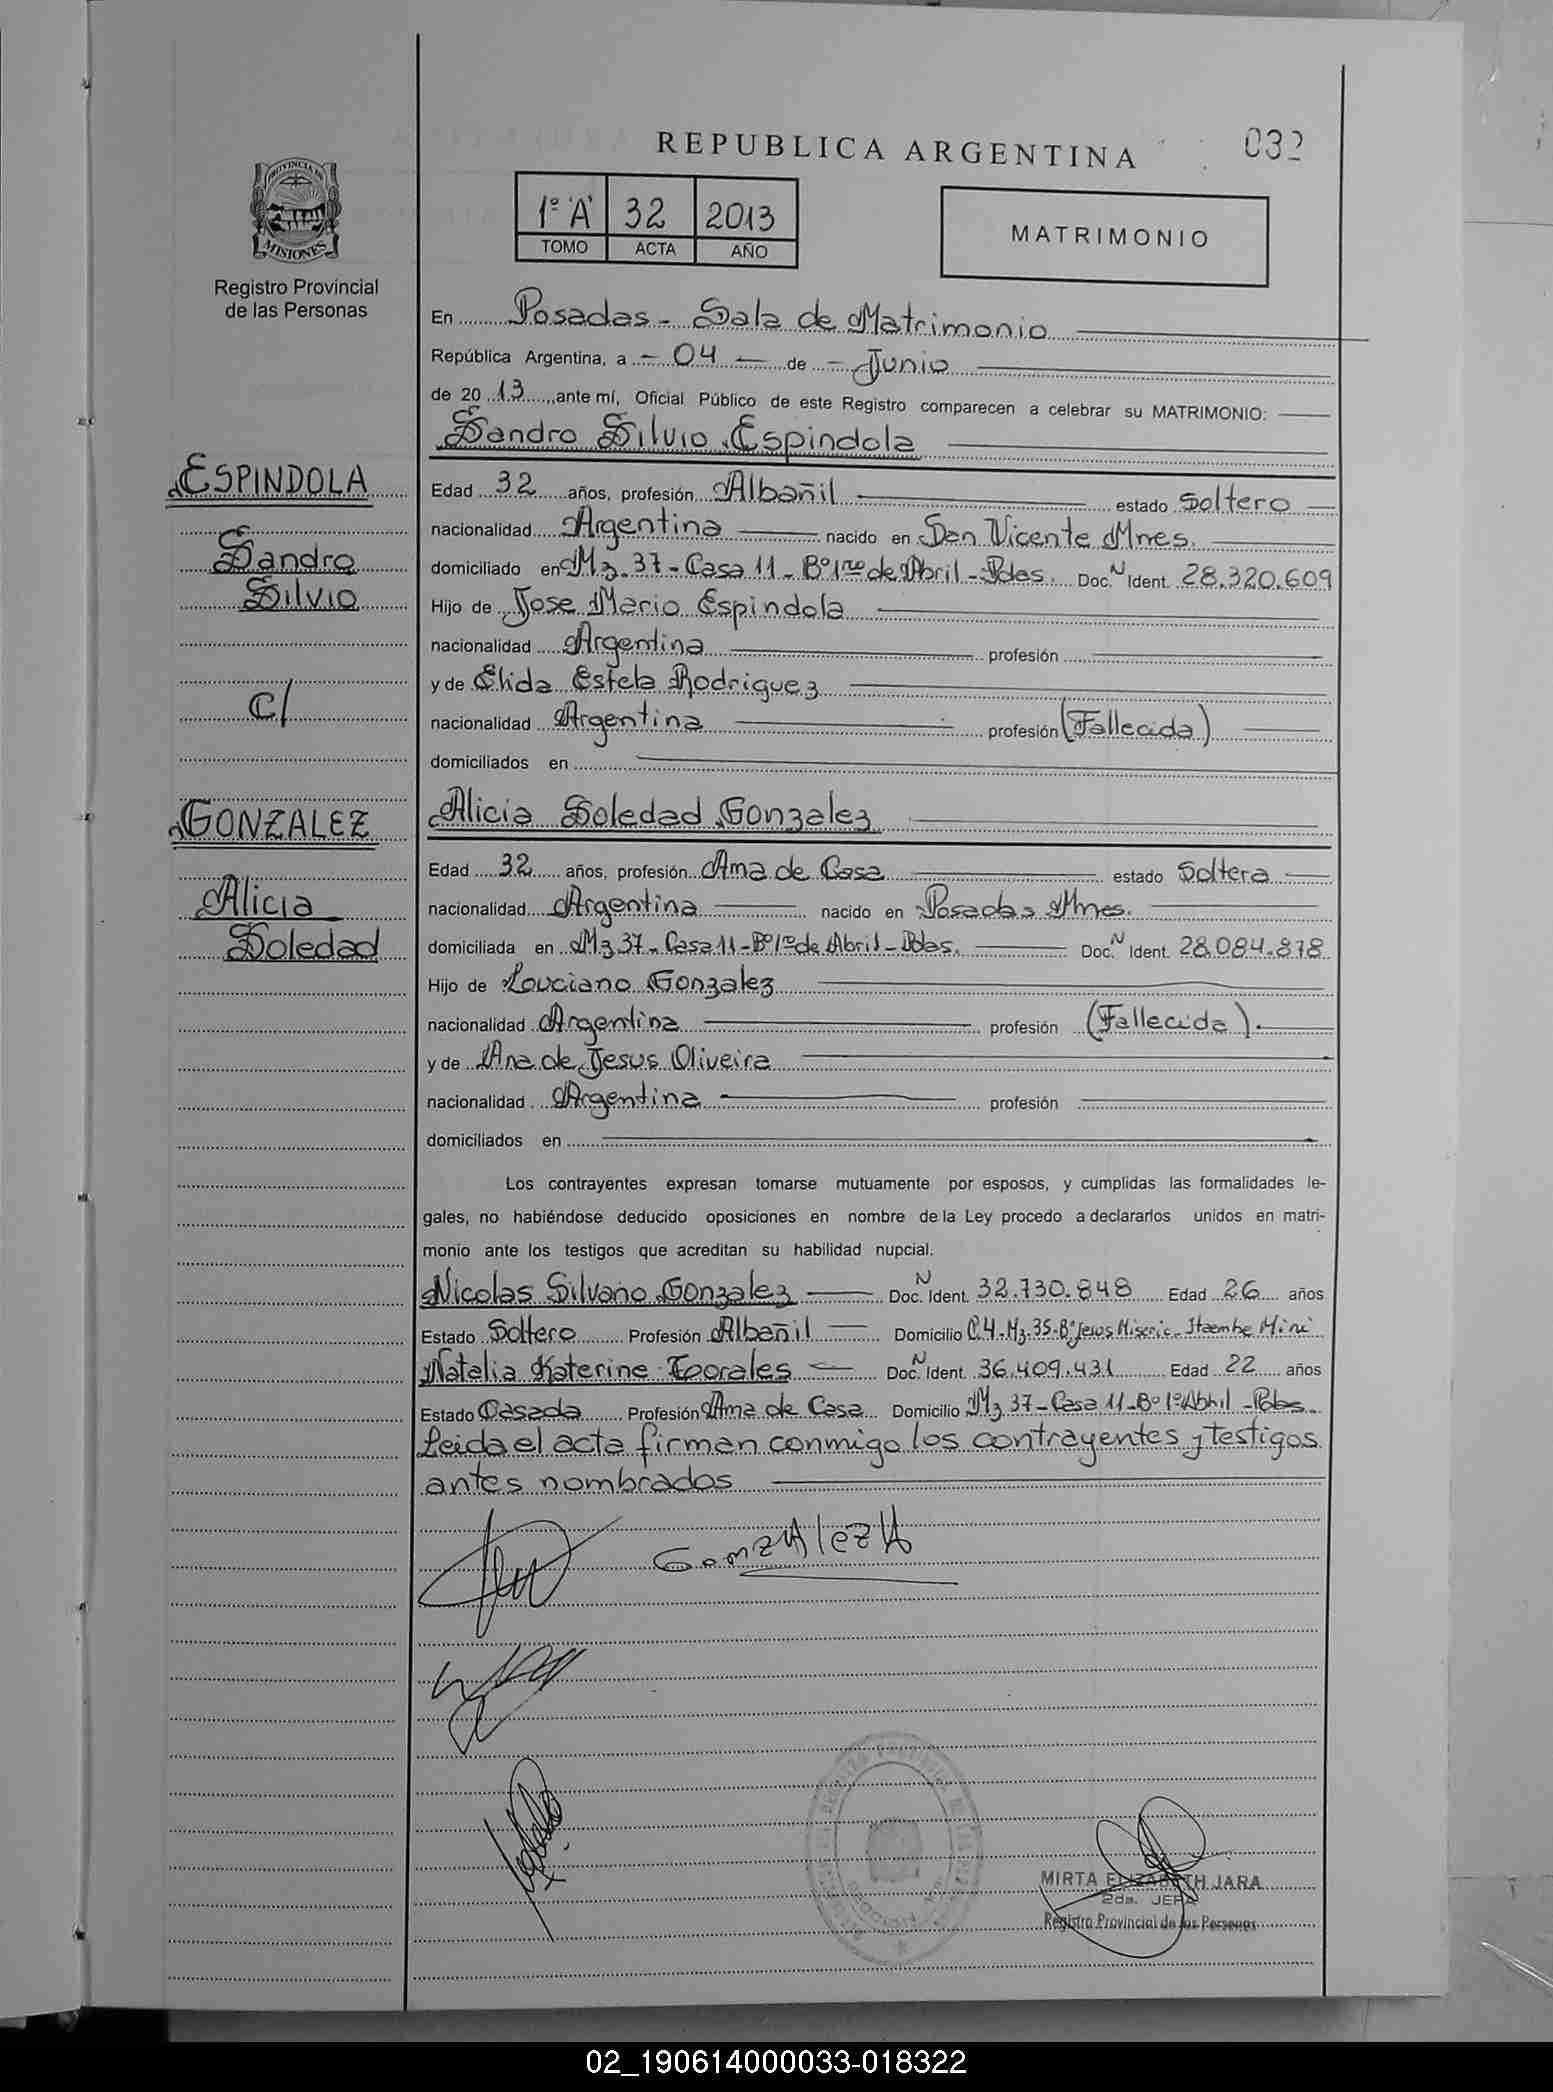 REPUBLICA ARGENTINA
032
PROVINCIA DE
MISIONES
Registro Provincial
de las Personas
1º "A" 32 2013
TOMO ACTA AÑO
MATRIMONIO
En Posadas - Sala de Matrimonio
República Argentina, a - 04 - de - Junio
de 20 13, ante mí, Oficial Público de este Registro comparecen a celebrar su MATRIMONIO:
Sandro Silvio Espindola
ESPINDOLA
Sandro
Silvio
c/
GONZALEZ
Alicia
Soledad
Edad 32 años, profesión Albañil estado Soltero
nacionalidad Argentina nacido en San Vicente Mnes.
domiciliado en Mz. 37 - Casa 11 - Bº 1ro de Abril - Pdas. Doc. N Ident. 28.320.609
Hijo de Jose Mario Espindola
nacionalidad Argentina profesión
y de Elida Estela Rodriguez
nacionalidad Argentina profesión (Fallecida)
domiciliados en
Alicia Soledad Gonzalez
Edad 32 años, profesión Ama de Casa estado Soltera
nacionalidad Argentina nacido en Posadas Mnes.
domiciliada en Mz 37 - Casa 11 - Bº 1ro de Abril - Pdas. Doc. N Ident. 28.084.878
Hijo de Louciano Gonzalez
nacionalidad Argentina profesión (Fallecida).
y de Ana de Jesus Oliveira
nacionalidad Argentina profesión
domiciliados en
Los contrayentes expresan tomarse mutuamente por esposos, y cumplidas las formalidades le-
gales, no habiéndose deducido oposiciones en nombre de la Ley procedo a declararlos unidos en matri-
monio ante los testigos que acreditan su habilidad nupcial.
Nicolas Silvano Gonzalez Doc. N Ident. 32.730.848 Edad 26 años
Estado Soltero Profesión Albañil Domicilio C.4 - Mz. 35 - Bº Jesus Miseric - Itaembe Mini
Natalia Katerine Toorales Doc. N Ident. 36.409.431 Edad 22 años
Estado Casada Profesión Ama de Casa Domicilio Mz 37 - Casa 11 - Bº 1º Abril - Pdas.
Leida el acta firman conmigo los contrayentes y testigos
antes nombrados
GonzAlez A
MIRTA ELIZABETH JARA
2da. JEFA
Registro Provincial de las Personas
02_190614000033-018322